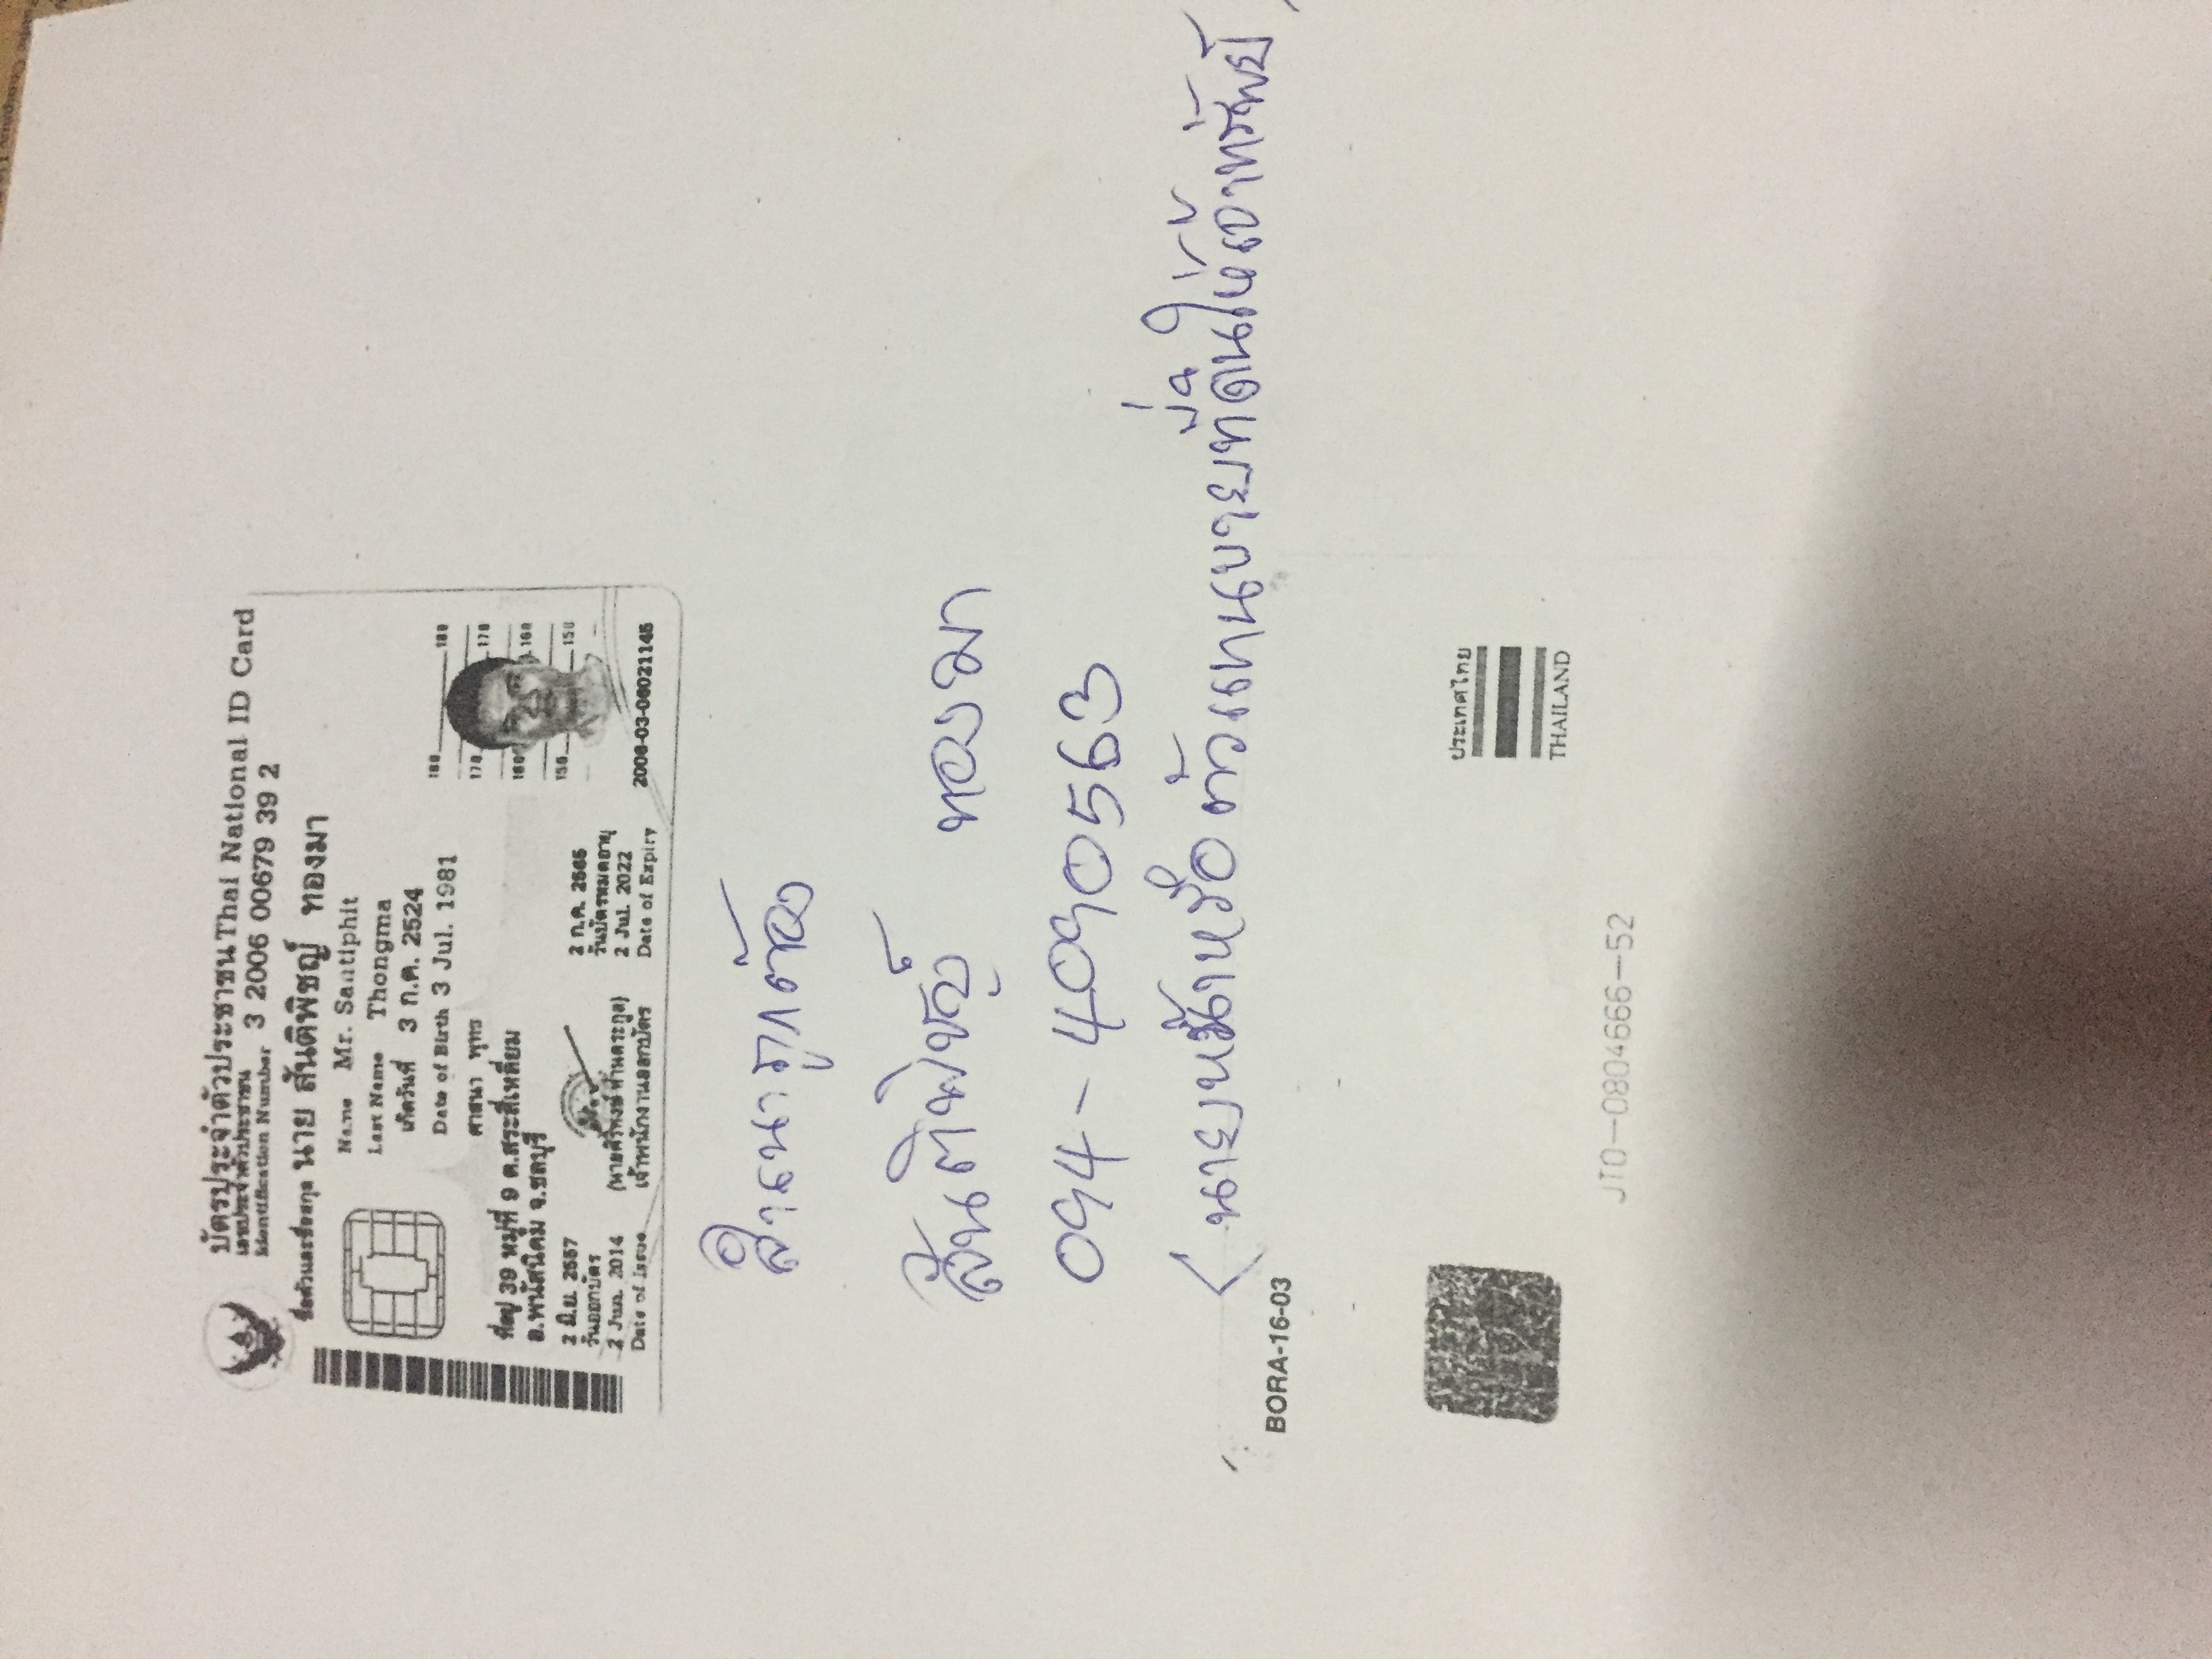 บัตรประจำตัวประชาชน Thai National ID Card
เลขประจำตัวประชาชน 3 2006 00679 39 2
Identification Number
ชื่อตัวและชื่อสกุล นาย สันติพิชญ์ ทองมา
Name Mr. Santiphit
Last Name Thongma
เกิดวันที่ 3 ก.ค. 2524
Date of Birth 3 Jul. 1981
ศาสนา พุทธ
ที่อยู่ 39 หมู่ที่ 9 ต.สระสี่เหลี่ยม
อ.พนัสนิคม จ.ชลบุรี
2 มิ.ย. 2557
วันออกบัตร
2 Jun. 2014
Date of Issue
เจ้าพนักงานออกบัตร
2 ก.ค. 2565
วันบัตรหมดอายุ
2 Jul. 2022
Date of Expiry
180 180
170 170
160 160
150 150
2006-03-06021145
สำเนาถูกต้อง
สันติพิชญ์ ทองมา
094-4090563
นายหน้าหรือตัวแทนขายที่ดินให้เจ้าทรัพย์
BORA-16-03
ประเทศไทย
THAILAND
JT0-0804666-52